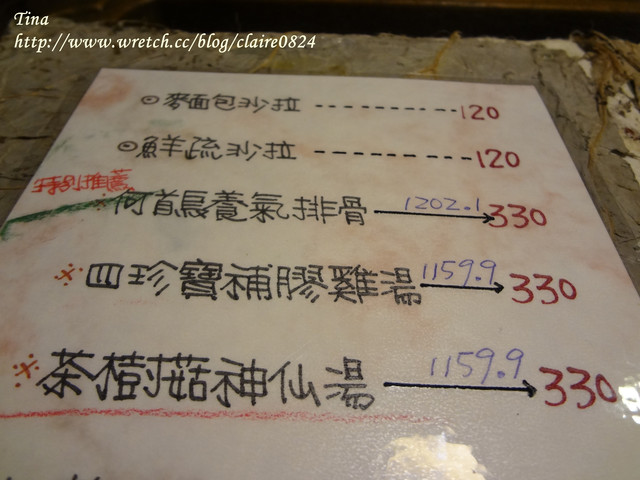 Tina
http://www.wretch.cc/blog/claire0824
⊙麥面包沙拉 ----------120
⊙鮮疏沙拉 ---------120
特別推薦
※何首烏養氣排骨 1202.1 330
※四珍寶補膠雞湯 1159.9 330
※茶樹菇神仙湯 1159.9 330